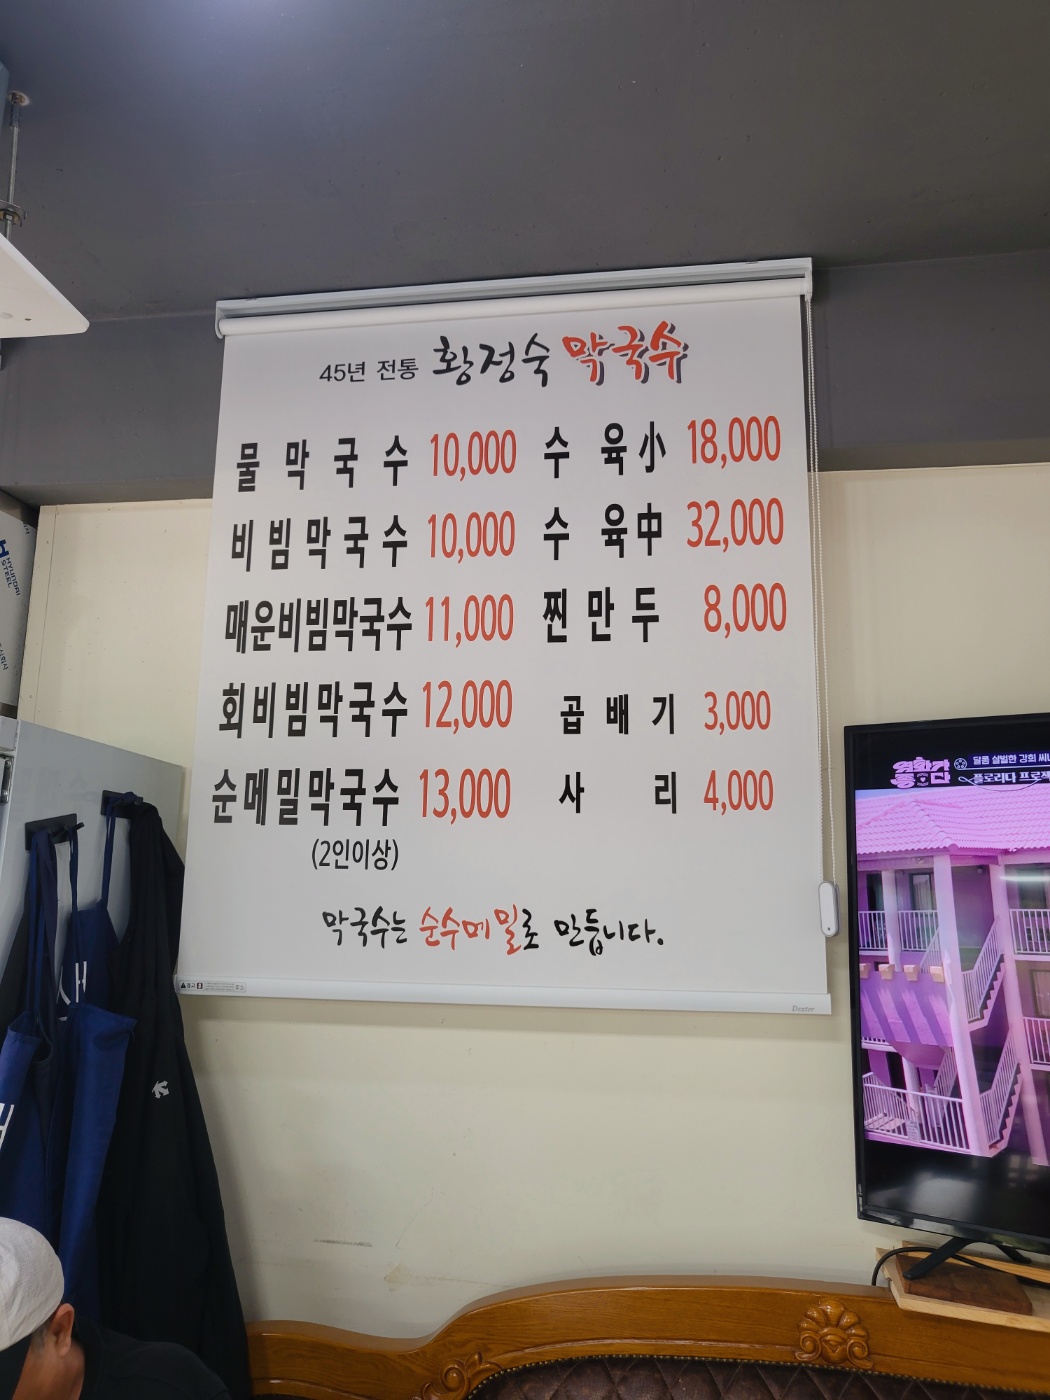 45년 전통 황정숙 막국수
물막국수 10,000 수육小 18,000
비빔막국수 10,000 수육中 32,000
매운비빔막국수 11,000 찐만두 8,000
회비빔막국수 12,000 곱배기 3,000
순메밀막국수 13,000 사리 4,000
(2인이상)
막국수는 순수메밀로 만듭니다.
Dexter
HYUNDAI
STEEL
영화가
좋다
달콤 살벌한 강회 씨네
플로리다 프로젝